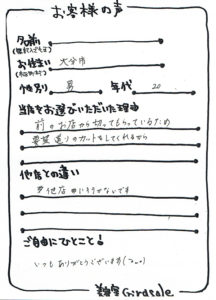 お客様の声
名前
お住まい 大分市
(市区町村)
性別 男 年代 20
当店をお選びいただいた理由
前のお店から切ってもらっているため
要望通りのカットをしてくれるから
他店との違い
いつもありがとうございます
ご自由にひとこと!
美容室Girasole